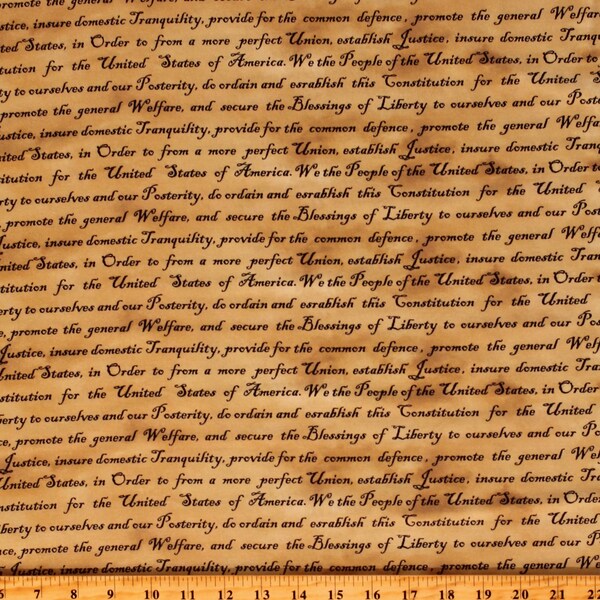 promote the general Welfare, and secure the Blessings of Liberty to ourselves and our
insure domestic Tranquility, provide for the common defence, promote the general Welfare
States, in Order to from a more perfect Union, establish Justice, insure domestic Tranqu
for the United States of America. We the People of the United States, in Order to
to ourselves and our Posterity, do ordain and esrablish this Constitution for the United S
promote the general Welfare, and secure the Blessings of Liberty to ourselves and our Poste
ustice, insure domestic Tranquility, provide for the common defence, promote the general Welfa
ited States, in Order to from a more perfect Union, establish Justice, insure domestic Tran
itution for the United States of America. We the People of the United States, in Order to
rty to ourselves and our Posterity, do ordain and esrablish this Constitution for the United
, promote the general Welfare, and secure the Blessings of Liberty to ourselves and our Post
Justice, insure domestic Tranquility, provide for the common defence, promote the general Welf
nited States, in Order to from a more perfect Union, establish Justice, insure domestic Tran
titution for the United States of America. We the People of the United States, in Order t
erty to ourselves and our Posterity, do ordain and esrablish this Constitution for the United
e, promote the general Welfare, and secure the Blessings of Liberty to ourselves and our Pos
Justice, insure domestic Tranquility, provide for the common defence, promote the general Wel
United States, in Order to from a more perfect Union, establish Justice, insure domestic Tran
stitution for the United States of America. We the People of the United States, in Order
berty to ourselves and our Posterity, do ordain and esrablish this Constitution for the United
ce, promote the general Welfare, and secure the Blessings of Liberty to ourselves and our Po
Justice, insure domestic Tranquility, provide for the common defence, promote the general Wel
United States, in Order to from a more perfect Union, establish Justice, insure domestic Tra
nstitution for the United States of America. We the People of the United States, in Order
iberty to ourselves and our Posterity, do ordain and esrablish this Constitution for the United
nce, promote the general Welfare, and secure the Blessings of Liberty to ourselves and our P
Justice, insure domestic Tranquility, provide for the common defence, promote the general We
7 8 9 10 11 12 13 14 15 16 17 18 19 20 21 22